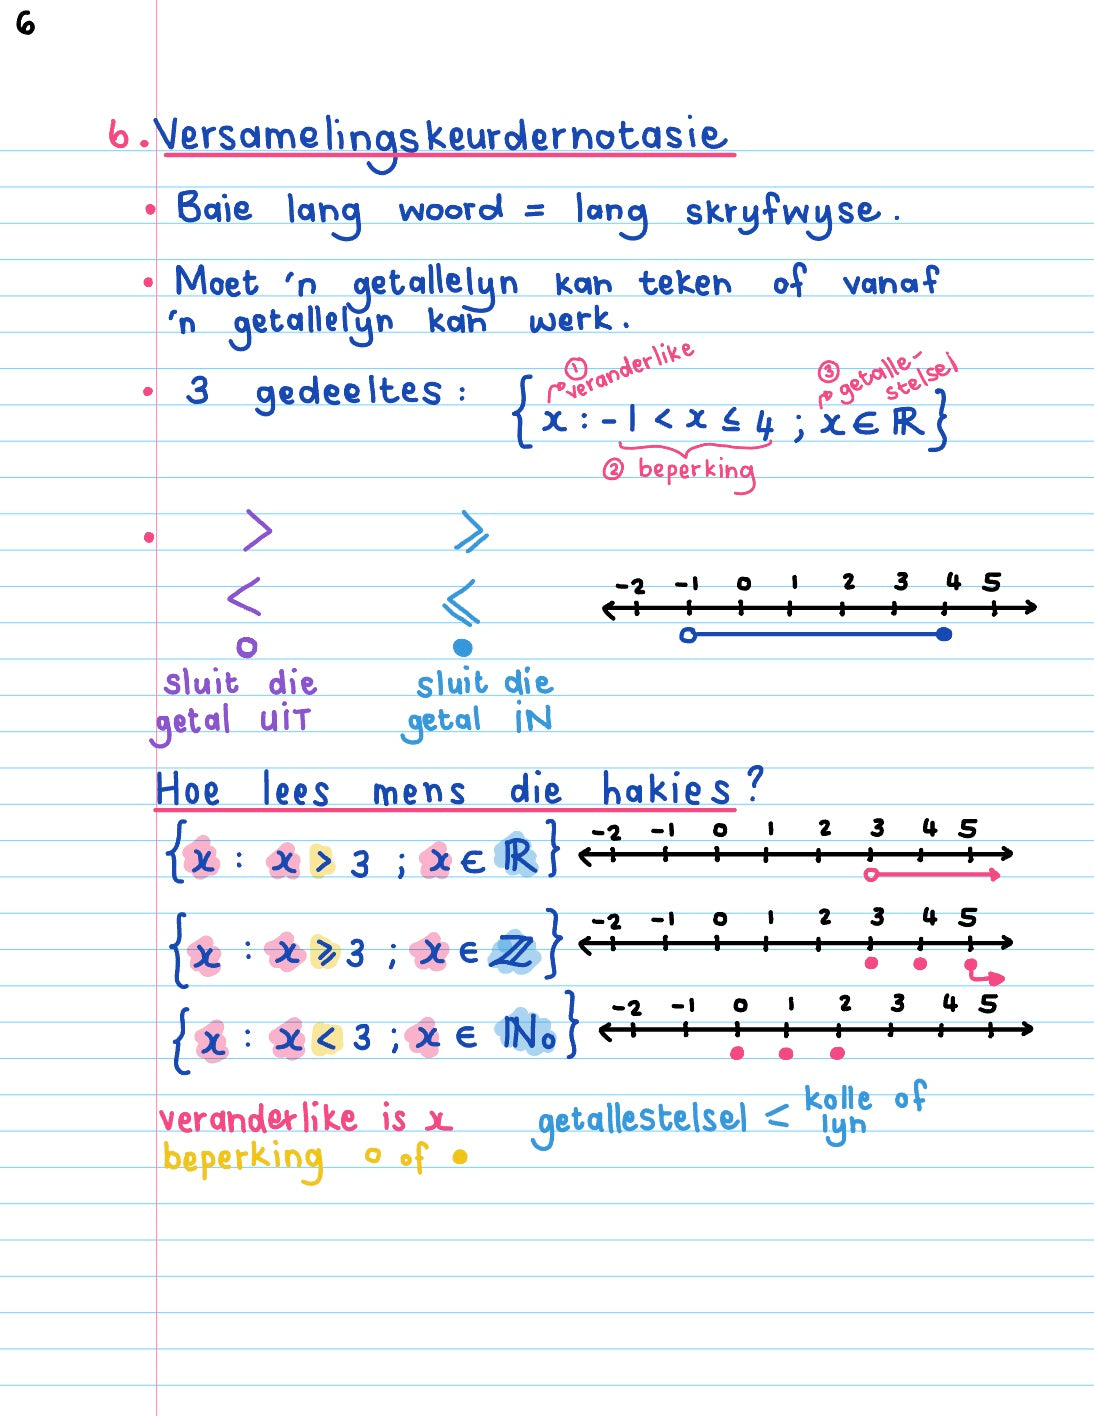 6
6. Versamelingskeurdernotasie
• Baie lang woord = lang skryfwyse.
• Moet 'n getallelyn kan teken of vanaf
'n getallelyn kan werk.
① veranderlike
③ getalle-
stelsel
• 3 gedeeltes: {x : -1 < x ≤ 4 ; x ∈ ℝ}
② beperking
• > ≥
< ≤
-2 -1 0 1 2 3 4 5
sluit die sluit die
getal UIT getal IN
Hoe lees mens die hakies?
{x : x > 3 ; x ∈ ℝ} -2 -1 0 1 2 3 4 5
{x : x ≥ 3 ; x ∈ ℤ} -2 -1 0 1 2 3 4 5
{x : x < 3 ; x ∈ ℕ₀} -2 -1 0 1 2 3 4 5
veranderlike is x getallestelsel < kolle of
lyn
beperking o of •